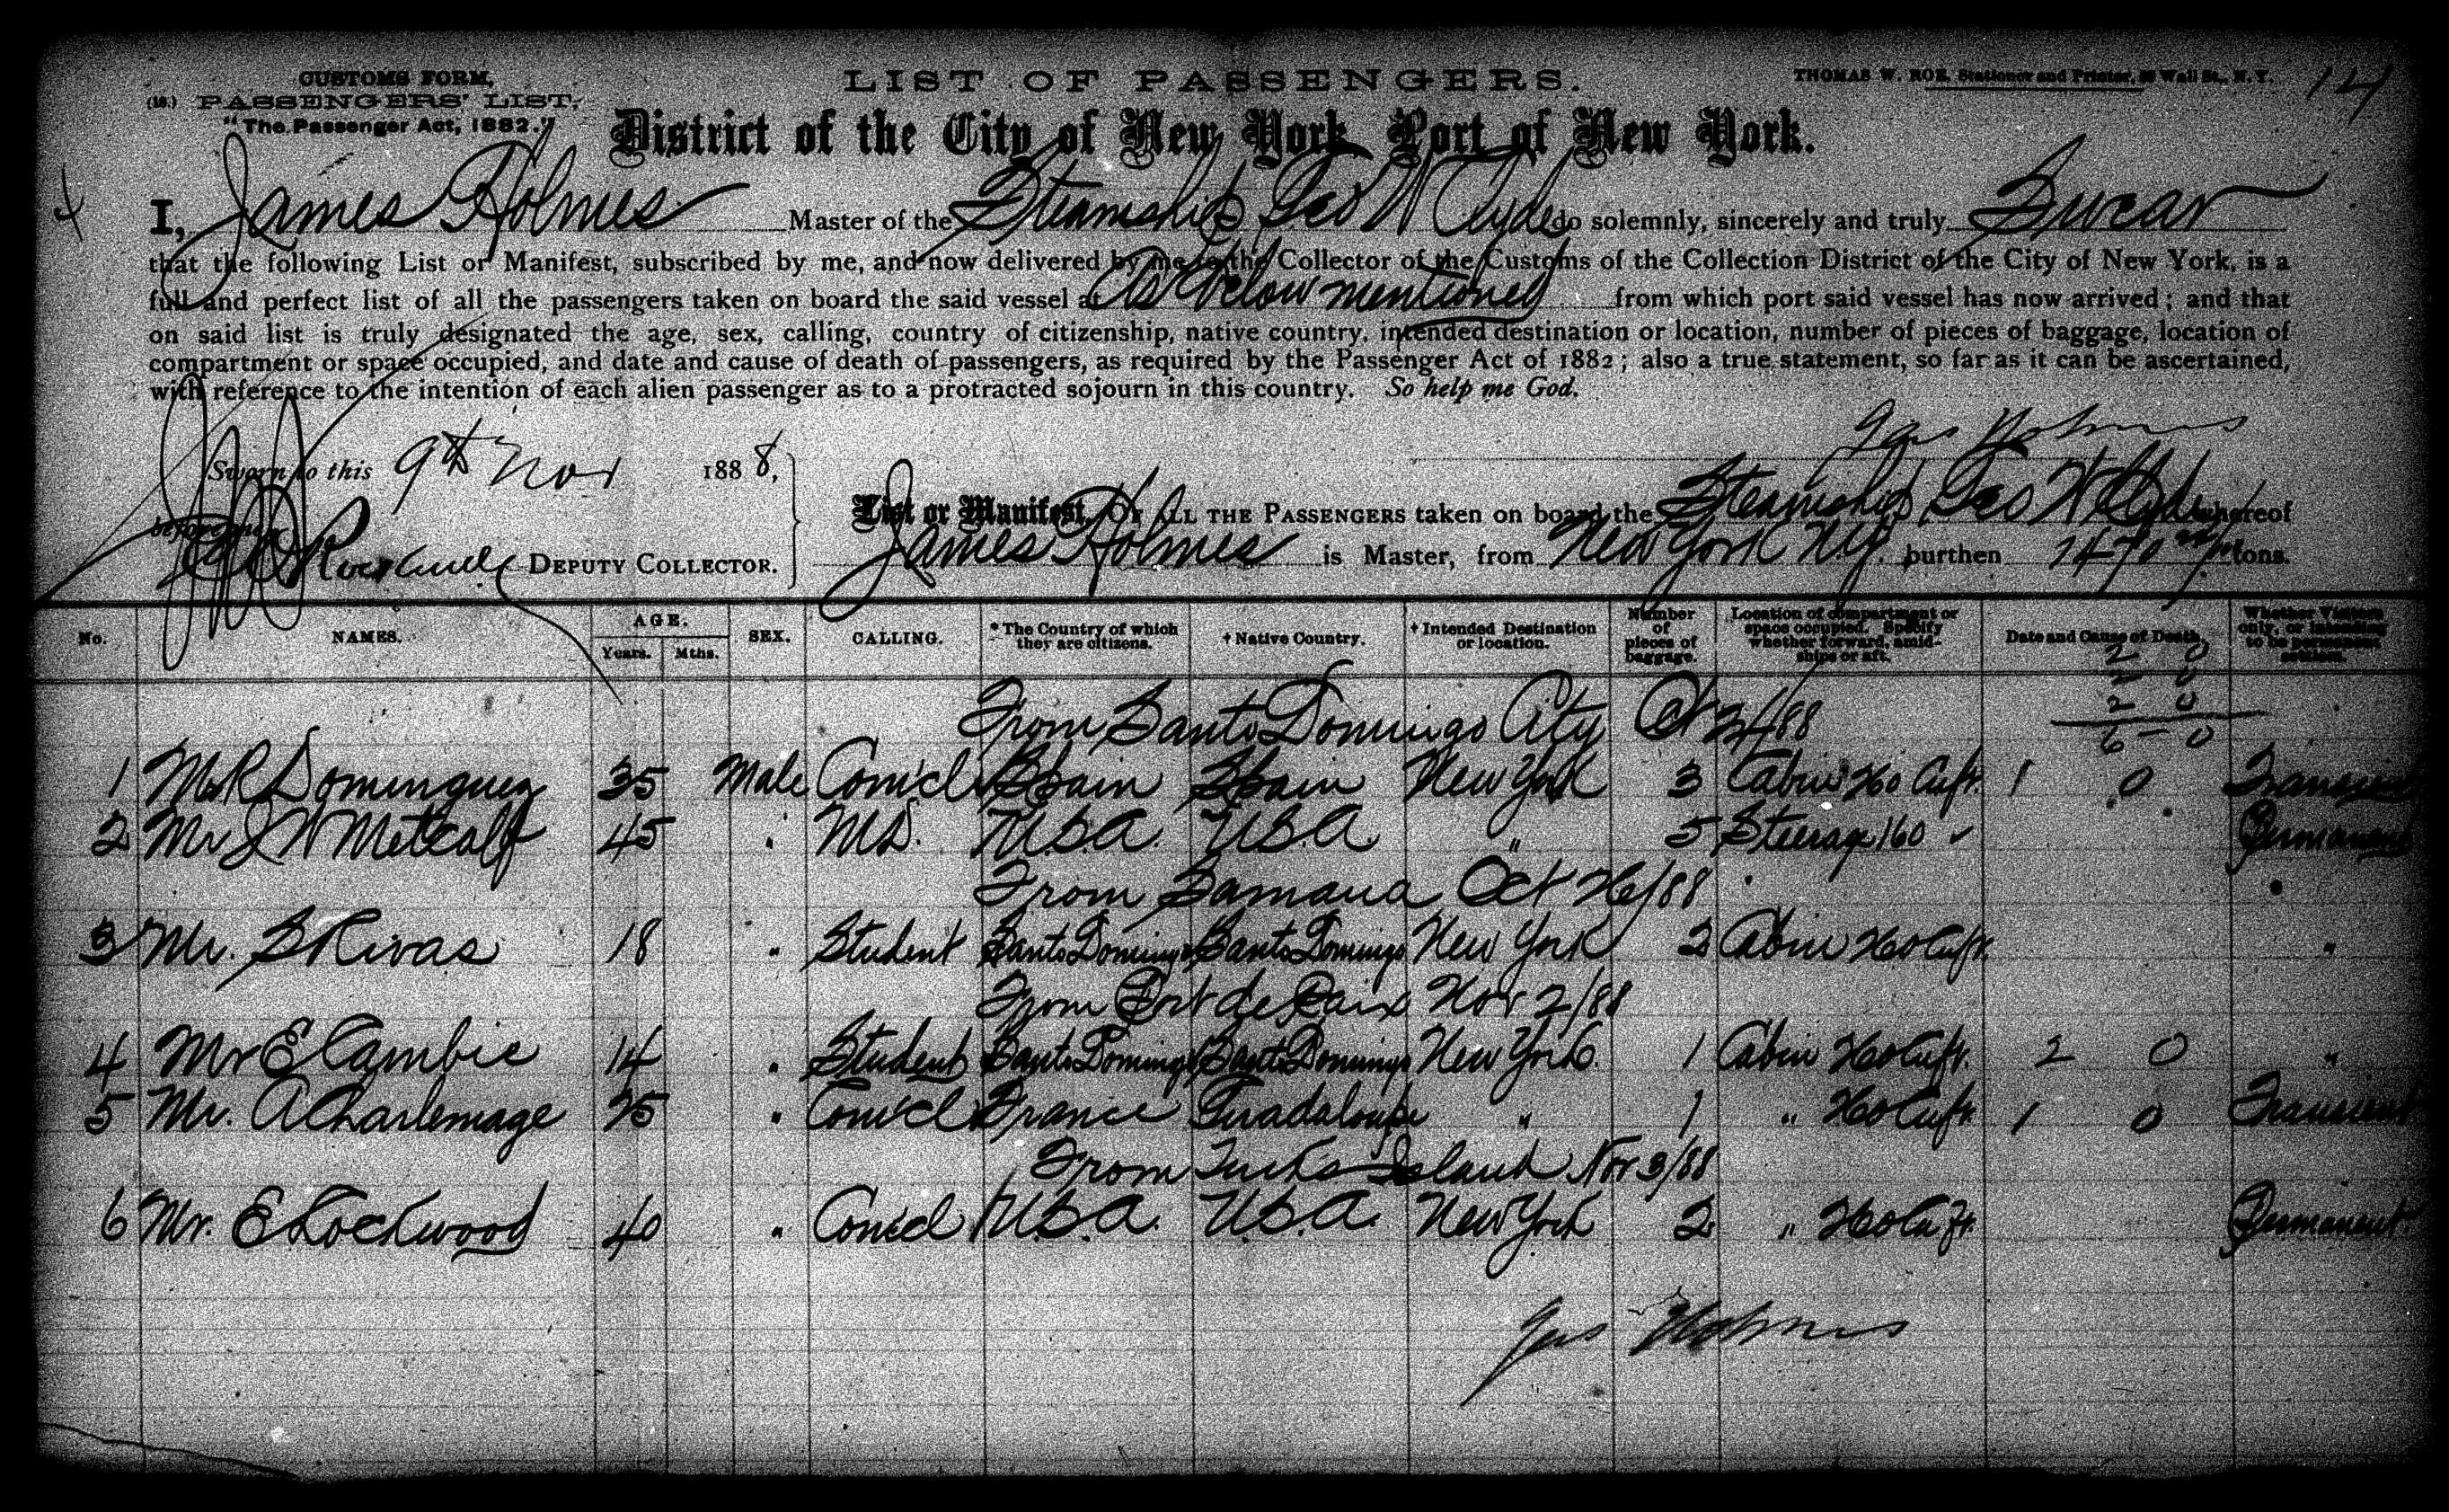 CUSTOMS FORM.
(18.) PASSENGERS' LIST.
"The Passenger Act, 1882."
LIST OF PASSENGERS.
THOMAS W. ROE, Stationer and Printer, Wall St., N. Y.
14
District of the City of New York, Port of New York.
I, James Holmes Master of the Steamship Geo W Clyde do solemnly, sincerely and truly Swear
that the following List or Manifest, subscribed by me, and now delivered by me to the Collector of the Customs of the Collection District of the City of New York, is a
full and perfect list of all the passengers taken on board the said vessel at As below mentioned from which port said vessel has now arrived; and that
on said list is truly designated the age, sex, calling, country of citizenship, native country, intended destination or location, number of pieces of baggage, location of
compartment or space occupied, and date and cause of death of passengers, as required by the Passenger Act of 1882; also a true statement, so far as it can be ascertained,
with reference to the intention of each alien passenger as to a protracted sojourn in this country. So help me God.
Jas Holmes
Sworn to this 9th Nov 1888,
before me
DEPUTY COLLECTOR.
List or Manifest, OF ALL THE PASSENGERS taken on board the Steamship Geo W Clyde whereof
James Holmes is Master, from New York N.Y. burthen 1470 tons.
No. NAMES. AGE. Years. Mths. SEX. CALLING. * The Country of which they are citizens. † Native Country. † Intended Destination or location. Number of pieces of baggage. Location of compartment or space occupied. Specify whether forward, amidships or aft. Date and Cause of Death. Whether Visitors only, or intending to be permanent settlers.
2 0
2 0
2 0
6 - 0
From Santo Domingo City Oct /88
1 Mr R Dominguez 35 Male Com'cl Spain Spain New York 3 Cabin 260 Cuft. 1 0 Transient
2 Mr J W Metcalf 45 " M.D. U.S.A. U.S.A. " 5 Steerage 160 Permanent
From Samana Oct 26/88
3 Mr. S Rivas 18 " Student Santo Domingo Santo Domingo New York 2 Cabin 260 Cuft. "
From Port de Paix Nov 2/88
4 Mr E Cambie 14 " Student Santo Domingo Santo Domingo New York. 1 Cabin 260 Cuft. 2 0 "
5 Mr. A Charlemage 25 " Com'cl France Guadaloupe " 1 " 260 Cuft. 1 0 Transient
From Turks Island Nov 3/88
6 Mr. E Lockwood 40 " Com'cl U.S.A. U.S.A. New York 2 " 260 Cu ft. Permanent
Jas Holmes